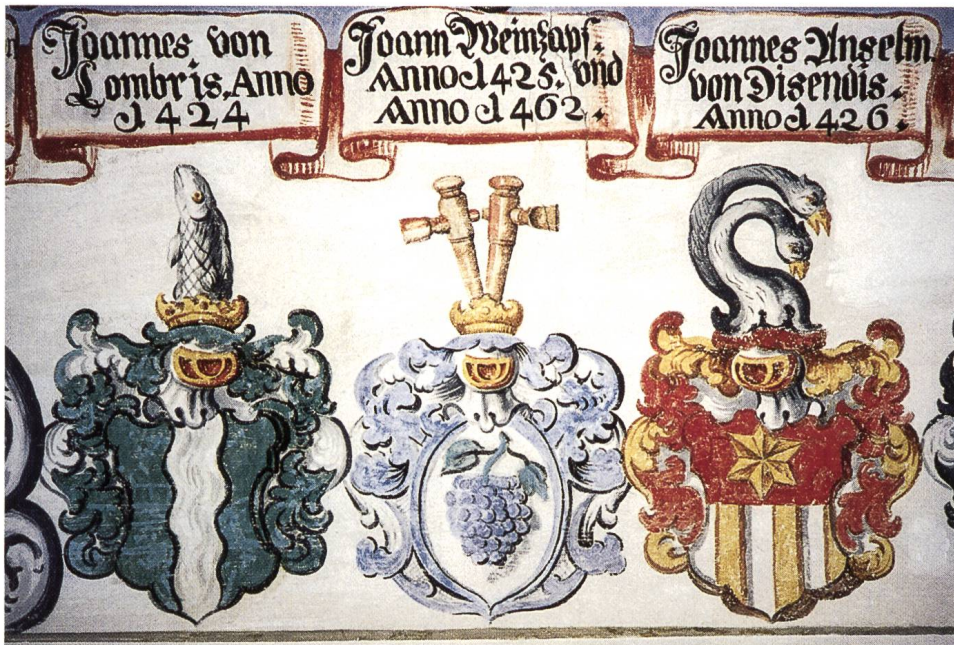 Joannes von
Lombris. Anno
1424
Joann Weinzapf.
Anno 1425. vnd
Anno 1462.
Joannes Anselm.
von Disendis.
Anno 1426.